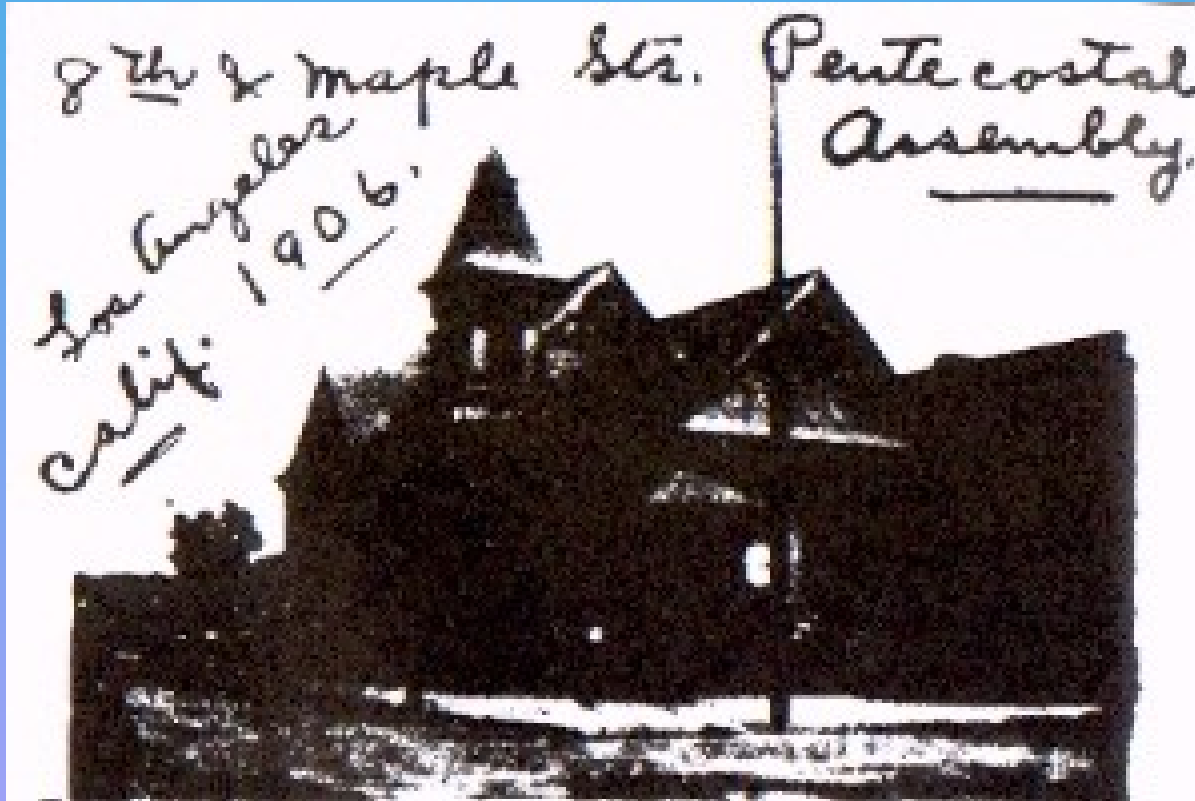 8th & Maple Sts. Pentecostal
Assembly.
Los Angeles
Calif. 1906.